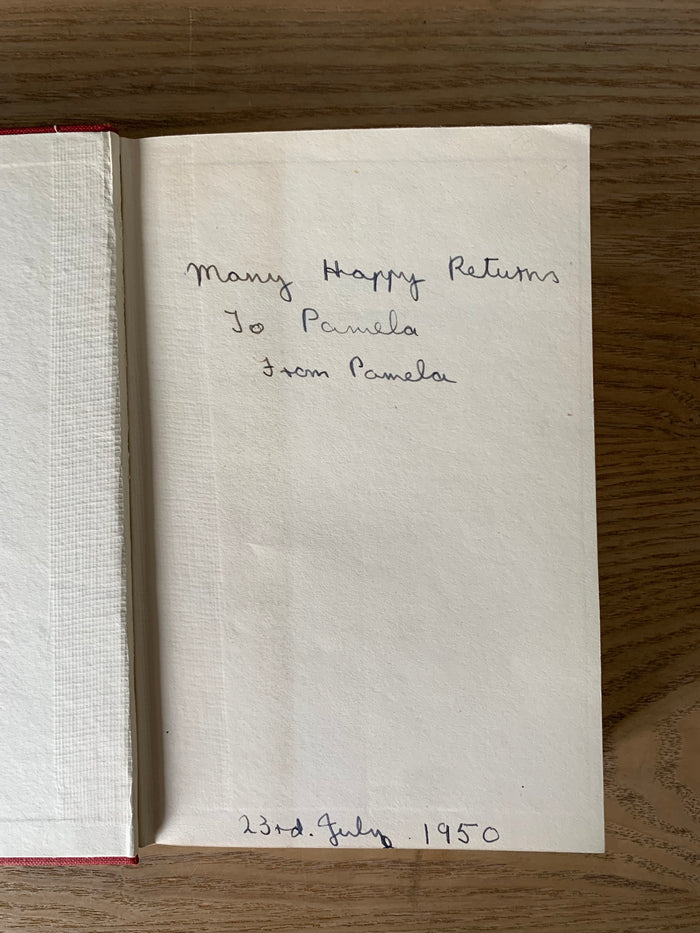 Many Happy Returns
To Pamela
From Pamela
23rd. July. 1950